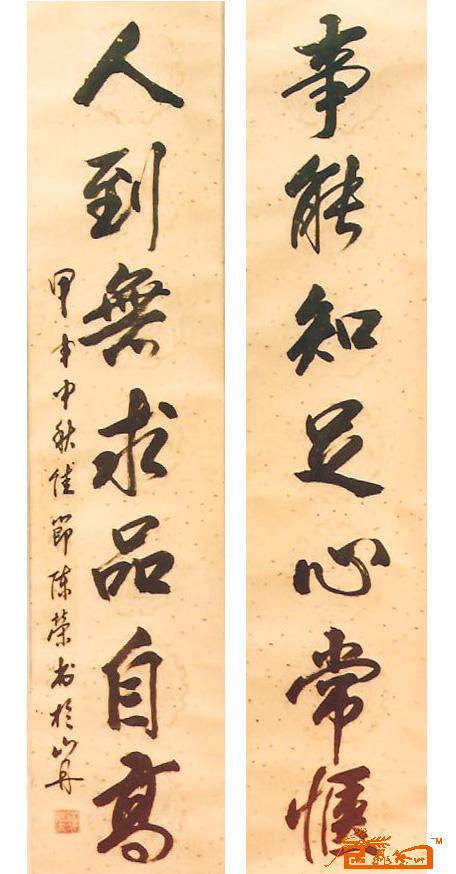 事能知足心常愜
人到無求品自高
甲申中秋佳節陳榮书於山丹
TM